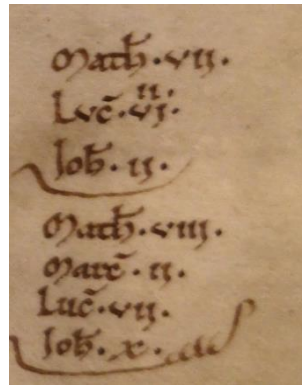 Math̄·vii·
Luc̄·vi·ii·
Ioh̄·ii·
Math̄·viii·
Marc̄·ii·
Luc̄·vii·
Ioh̄·x·